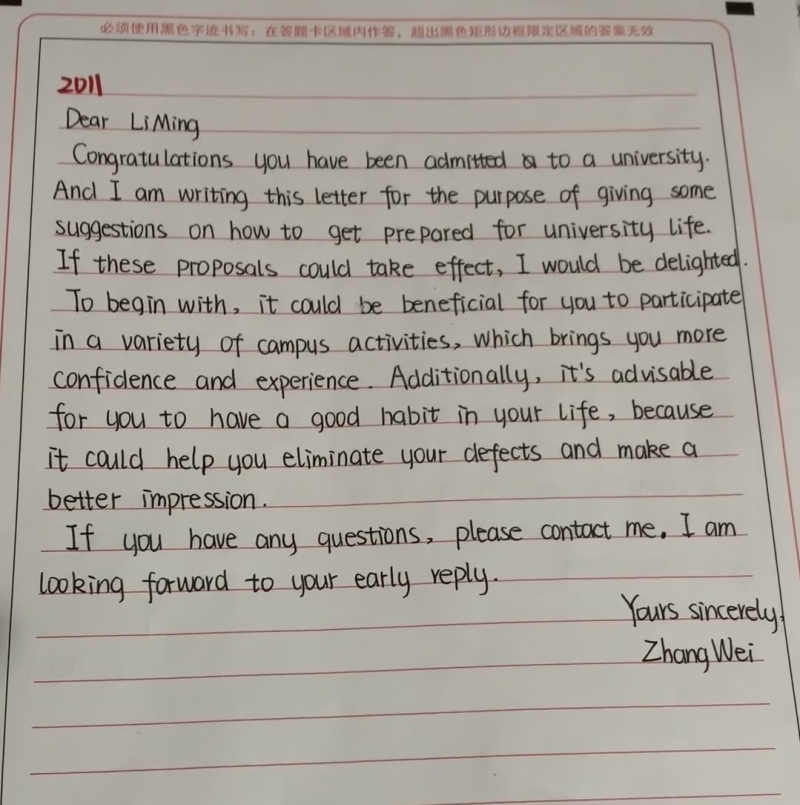 必须使用黑色字迹书写；在答题卡区域内作答，超出黑色矩形边框限定区域的答案无效
2011
Dear LiMing
Congratulations you have been admitted to a university.
And I am writing this letter for the purpose of giving some
suggestions on how to get prepared for university life.
If these proposals could take effect, I would be delighted.
To begin with, it could be beneficial for you to participate
in a variety of campus activities, which brings you more
confidence and experience. Additionally, it's advisable
for you to have a good habit in your life, because
it could help you eliminate your defects and make a
better impression.
If you have any questions, please contact me. I am
looking forward to your early reply.
Yours sincerely,
Zhang Wei